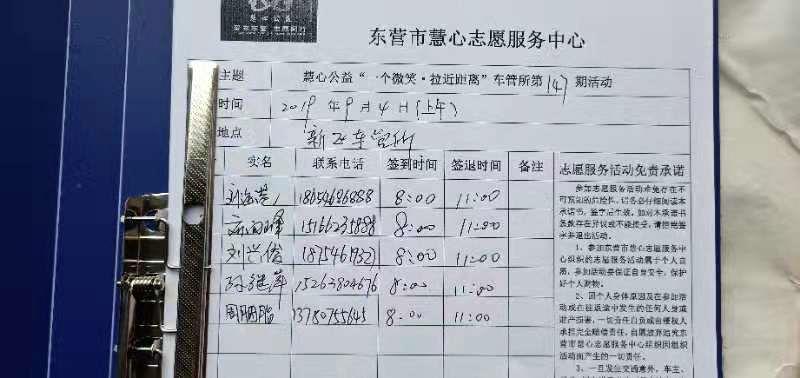 东营市慧心志愿服务中心
主题 慧心公益“一个微笑·拉近距离”车管所第147期活动
时间 2019年9月4日(上午)
地点 新区车管所
实名 联系电话 签到时间 签退时间 备注 志愿服务活动免责承诺
18654686888 8:00 11:00
15166235888 8:00 11:00
刘兰俊 18754619321 8:00 11:00
15263804676 8:00 11:00
周胭脂 13780755645 8:00 11:00
参加志愿服务活动承免存在不
可预知的危险性,请务必仔细阅读本
承诺书,签字后生效,如对本承诺书
条款存在异议或不能接受,请拒绝签
字并退出活动。
1、参加东营市慧心志愿服务中
心组织的志愿服务活动属于个人自
愿,参加活动要保证自身安全,保护
好个人财物。
2、因个人身体原因及在参加活
动或在往返途中发生的任何人身或
财产损害,一切责任自负或由侵权人
承担完全赔偿责任,自愿放弃追究东
营市慧心志愿服务中心组织因组织
活动而产生的一切责任。
3、一旦发生交通意外,车主、